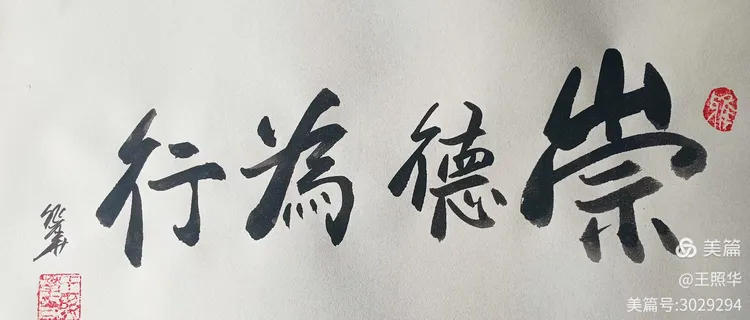 崇德為行
美篇
@王照华
美篇号:3029294